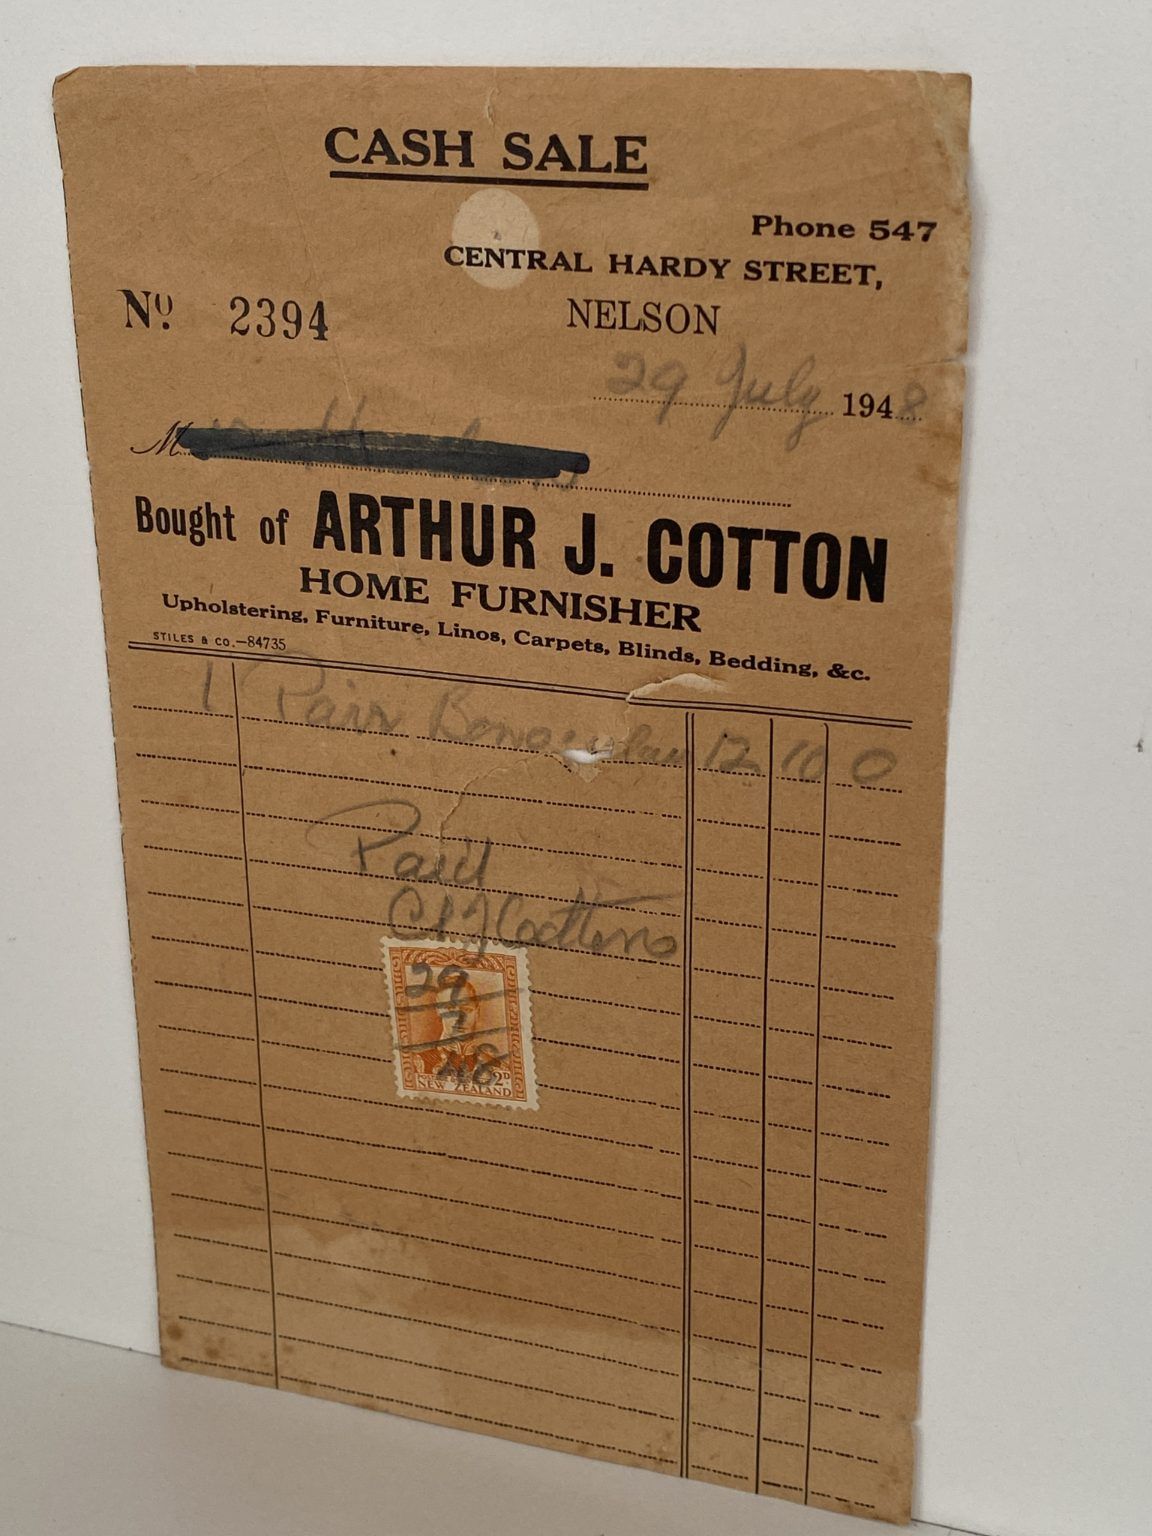 CASH SALE
Phone 547
CENTRAL HARDY STREET,
No. 2394
NELSON
29 July 1948
M
Bought of ARTHUR J. COTTON
HOME FURNISHER
Upholstering, Furniture, Linos, Carpets, Blinds, Bedding, &c.
STILES & CO.—84735
1 Pair 12 10 0
Paid
29
7
48
2D
NEW ZEALAND